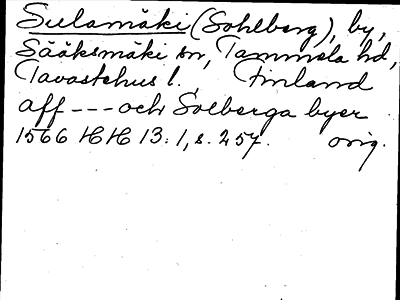 Sulamäki (Sohlberg), by,
Sääksmäki sn, Tammela hd,
Tavastehus l. Finland
aff --- och Solberga byer
1566 HH 13:1, s. 257. orig.